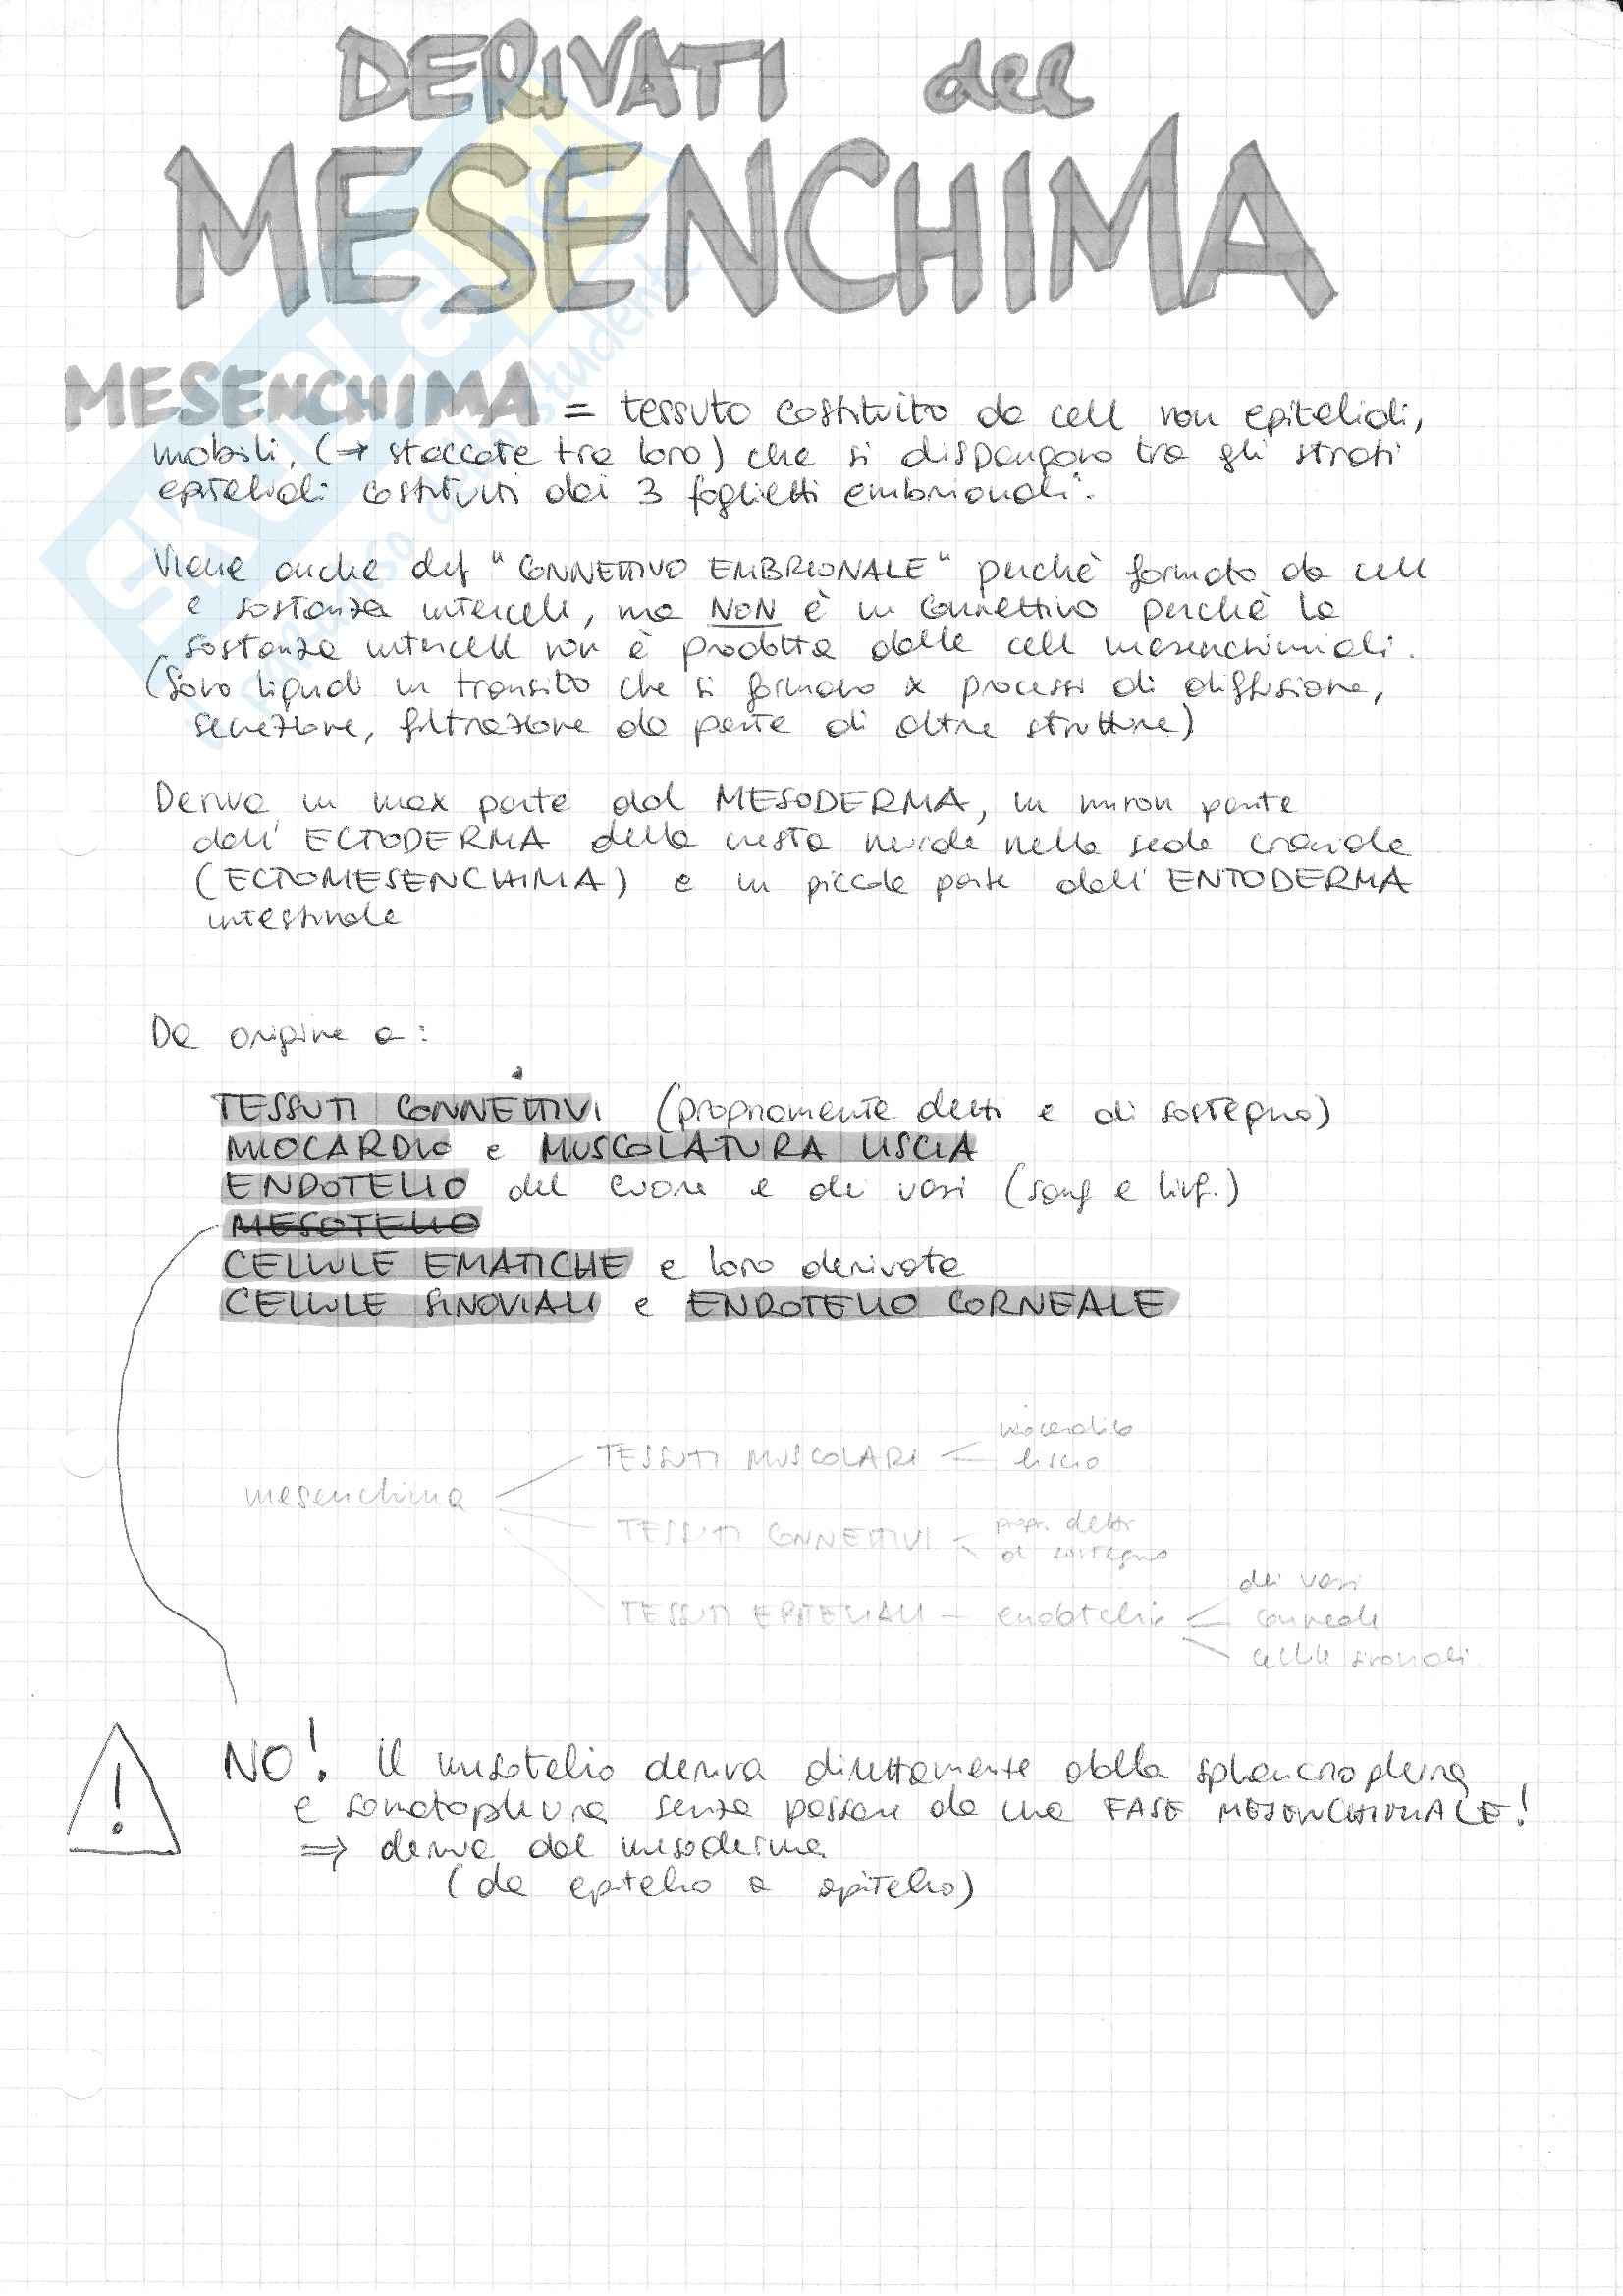 DERIVATI del
MESENCHIMA
MESENCHIMA = tessuto costituito da cell non epiteliali,
mobili, (→ staccate tra loro) che si dispongono tra gli strati
epiteliali costituiti dai 3 foglietti embrionali.
Viene anche def "CONNETTIVO EMBRIONALE" perchè formato da cell
e sostanza intercell, ma NON è un connettivo perchè la
sostanza intercell non è prodotta dalle cell mesenchimali.
(Sono liquidi in transito che si formano x processi di diffusione,
secrezione, filtrazione da parte di altre strutture)
Deriva in max parte dal MESODERMA, in minor parte
dall'ECTODERMA della cresta neurale nella sede craniale
(ECTOMESENCHIMA) e in piccola parte dall'ENTODERMA
intestinale
Da origine a:
TESSUTI CONNETTIVI (propriamente detti e di sostegno)
MIOCARDIO e MUSCOLATURA LISCIA
ENDOTELIO del cuore e dei vasi (sang e linf.)
MESOTELIO
CELLULE EMATICHE e loro derivate
CELLULE SINOVIALI e ENDOTELIO CORNEALE
miocardico
TESSUTI MUSCOLARI liscio
mesenchima
TESSUTI CONNETTIVI propr. detti
di sostegno
dei vasi
TESSUTI EPITELIALI - endotelio corneale
cellule sinoviali
NO! Il mesotelio deriva direttamente dalla splancnopleura
e somatopleura senza passare da una FASE MESENCHIMALE!
⇒ deriva dal mesoderma
(da epitelio a epitelio)